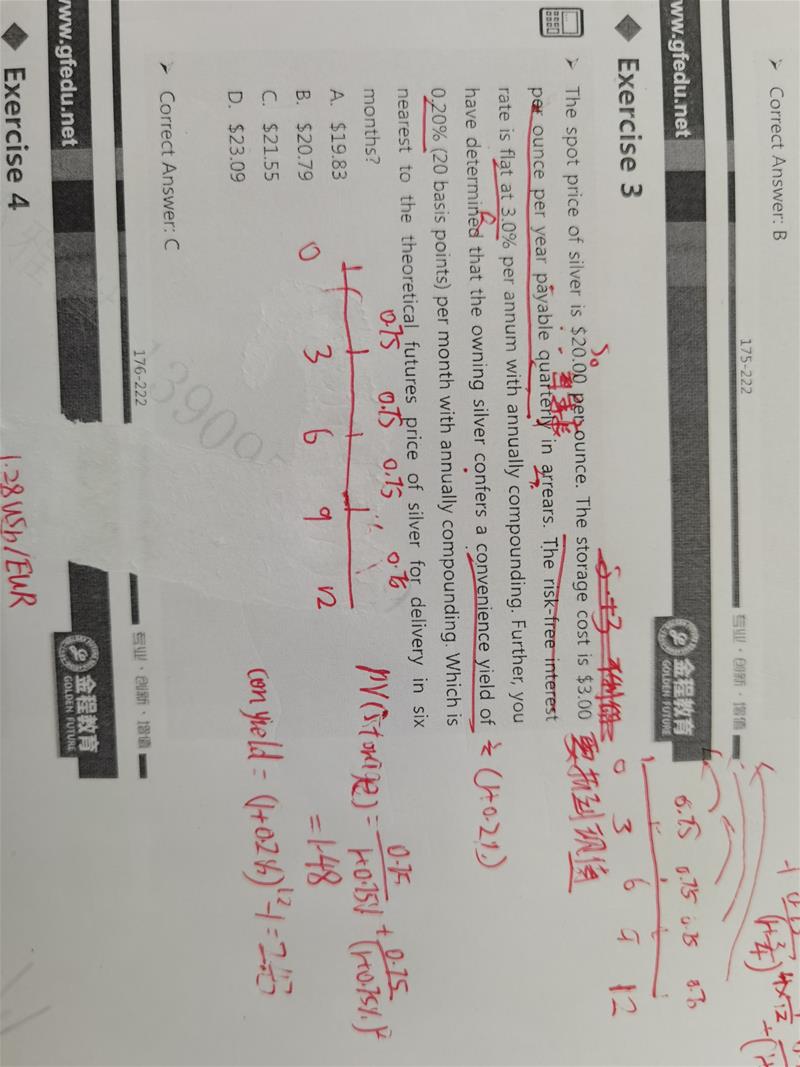 ➢ Correct Answer: B
175-222
专业·创新·增值
www.gfedu.net
金程教育
GOLDEN FUTURE
◆ Exercise 3
➢ The spot price of silver is $20.00 per ounce. The storage cost is $3.00
per ounce per year payable quarterly in arrears. The risk-free interest
rate is flat at 3.0% per annum with annually compounding. Further, you
have determined that the owning silver confers a convenience yield of
0.20% (20 basis points) per month with annually compounding. Which is
nearest to the theoretical futures price of silver for delivery in six
months?
A. $19.83
B. $20.79
C. $21.55
D. $23.09
➢ Correct Answer: C
S0
要折到现值
0 3 6 9 12
0.75 0.75 0.75 0.75
(1+0.2%)
0.75 0.75 0.75 0.75
0 3 6 9 12
PV(storage) = 0.75/1+0.75% + 0.75/(1+0.75%)²
= 1.48
con yield = (1+0.2%)^12 - 1 =
176-222
专业·创新·增值
www.gfedu.net
金程教育
GOLDEN FUTURE
◆ Exercise 4
1.28USD/EUR